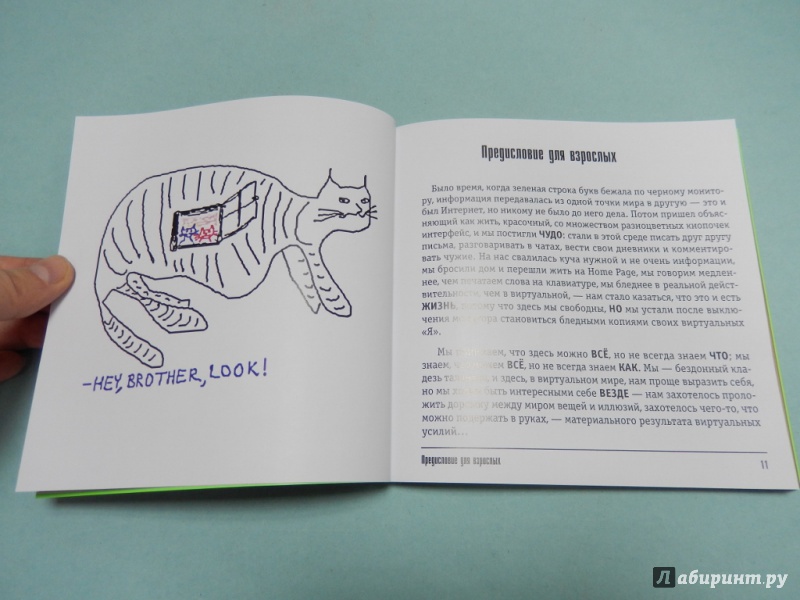 -HEY, BROTHER, LOOK!
Предисловие для взрослых
Было время, когда зеленая строка букв бежала по черному монито-
ру, информация передавалась из одной точки мира в другую — это и
был Интернет, но никому не было до него дела. Потом пришел объяс-
няющий как жить, красочный, со множеством разноцветных кнопочек
интерфейс, и мы постигли ЧУДО: стали в этой среде писать друг другу
письма, разговаривать в чатах, вести свои дневники и комментиро-
вать чужие. На нас свалилась куча нужной и не очень информации,
мы бросили дом и перешли жить на Home Page, мы говорим медлен-
нее, чем печатаем слова на клавиатуре, мы бледнее в реальной дейст-
вительности, чем в виртуальной, — нам стало казаться, что это и есть
ЖИЗНЬ, что здесь мы свободны, НО мы устали после выклю-
чения становиться бледными копиями своих виртуальных
«Я».
Мы что здесь можно ВСЁ, но не всегда знаем ЧТО; мы
знаем, ВСЁ, но не всегда знаем КАК. Мы — бездонный кла-
дезь и здесь, в виртуальном мире, нам проще выразить себя,
но мы быть интересными себе ВЕЗДЕ — нам захотелось проло-
жить между миром вещей и иллюзий, захотелось чего-то, что
можно подержать в руках, — материального результата виртуальных
усилий...
Предисловие для взрослых 11
Лабиринт.ру